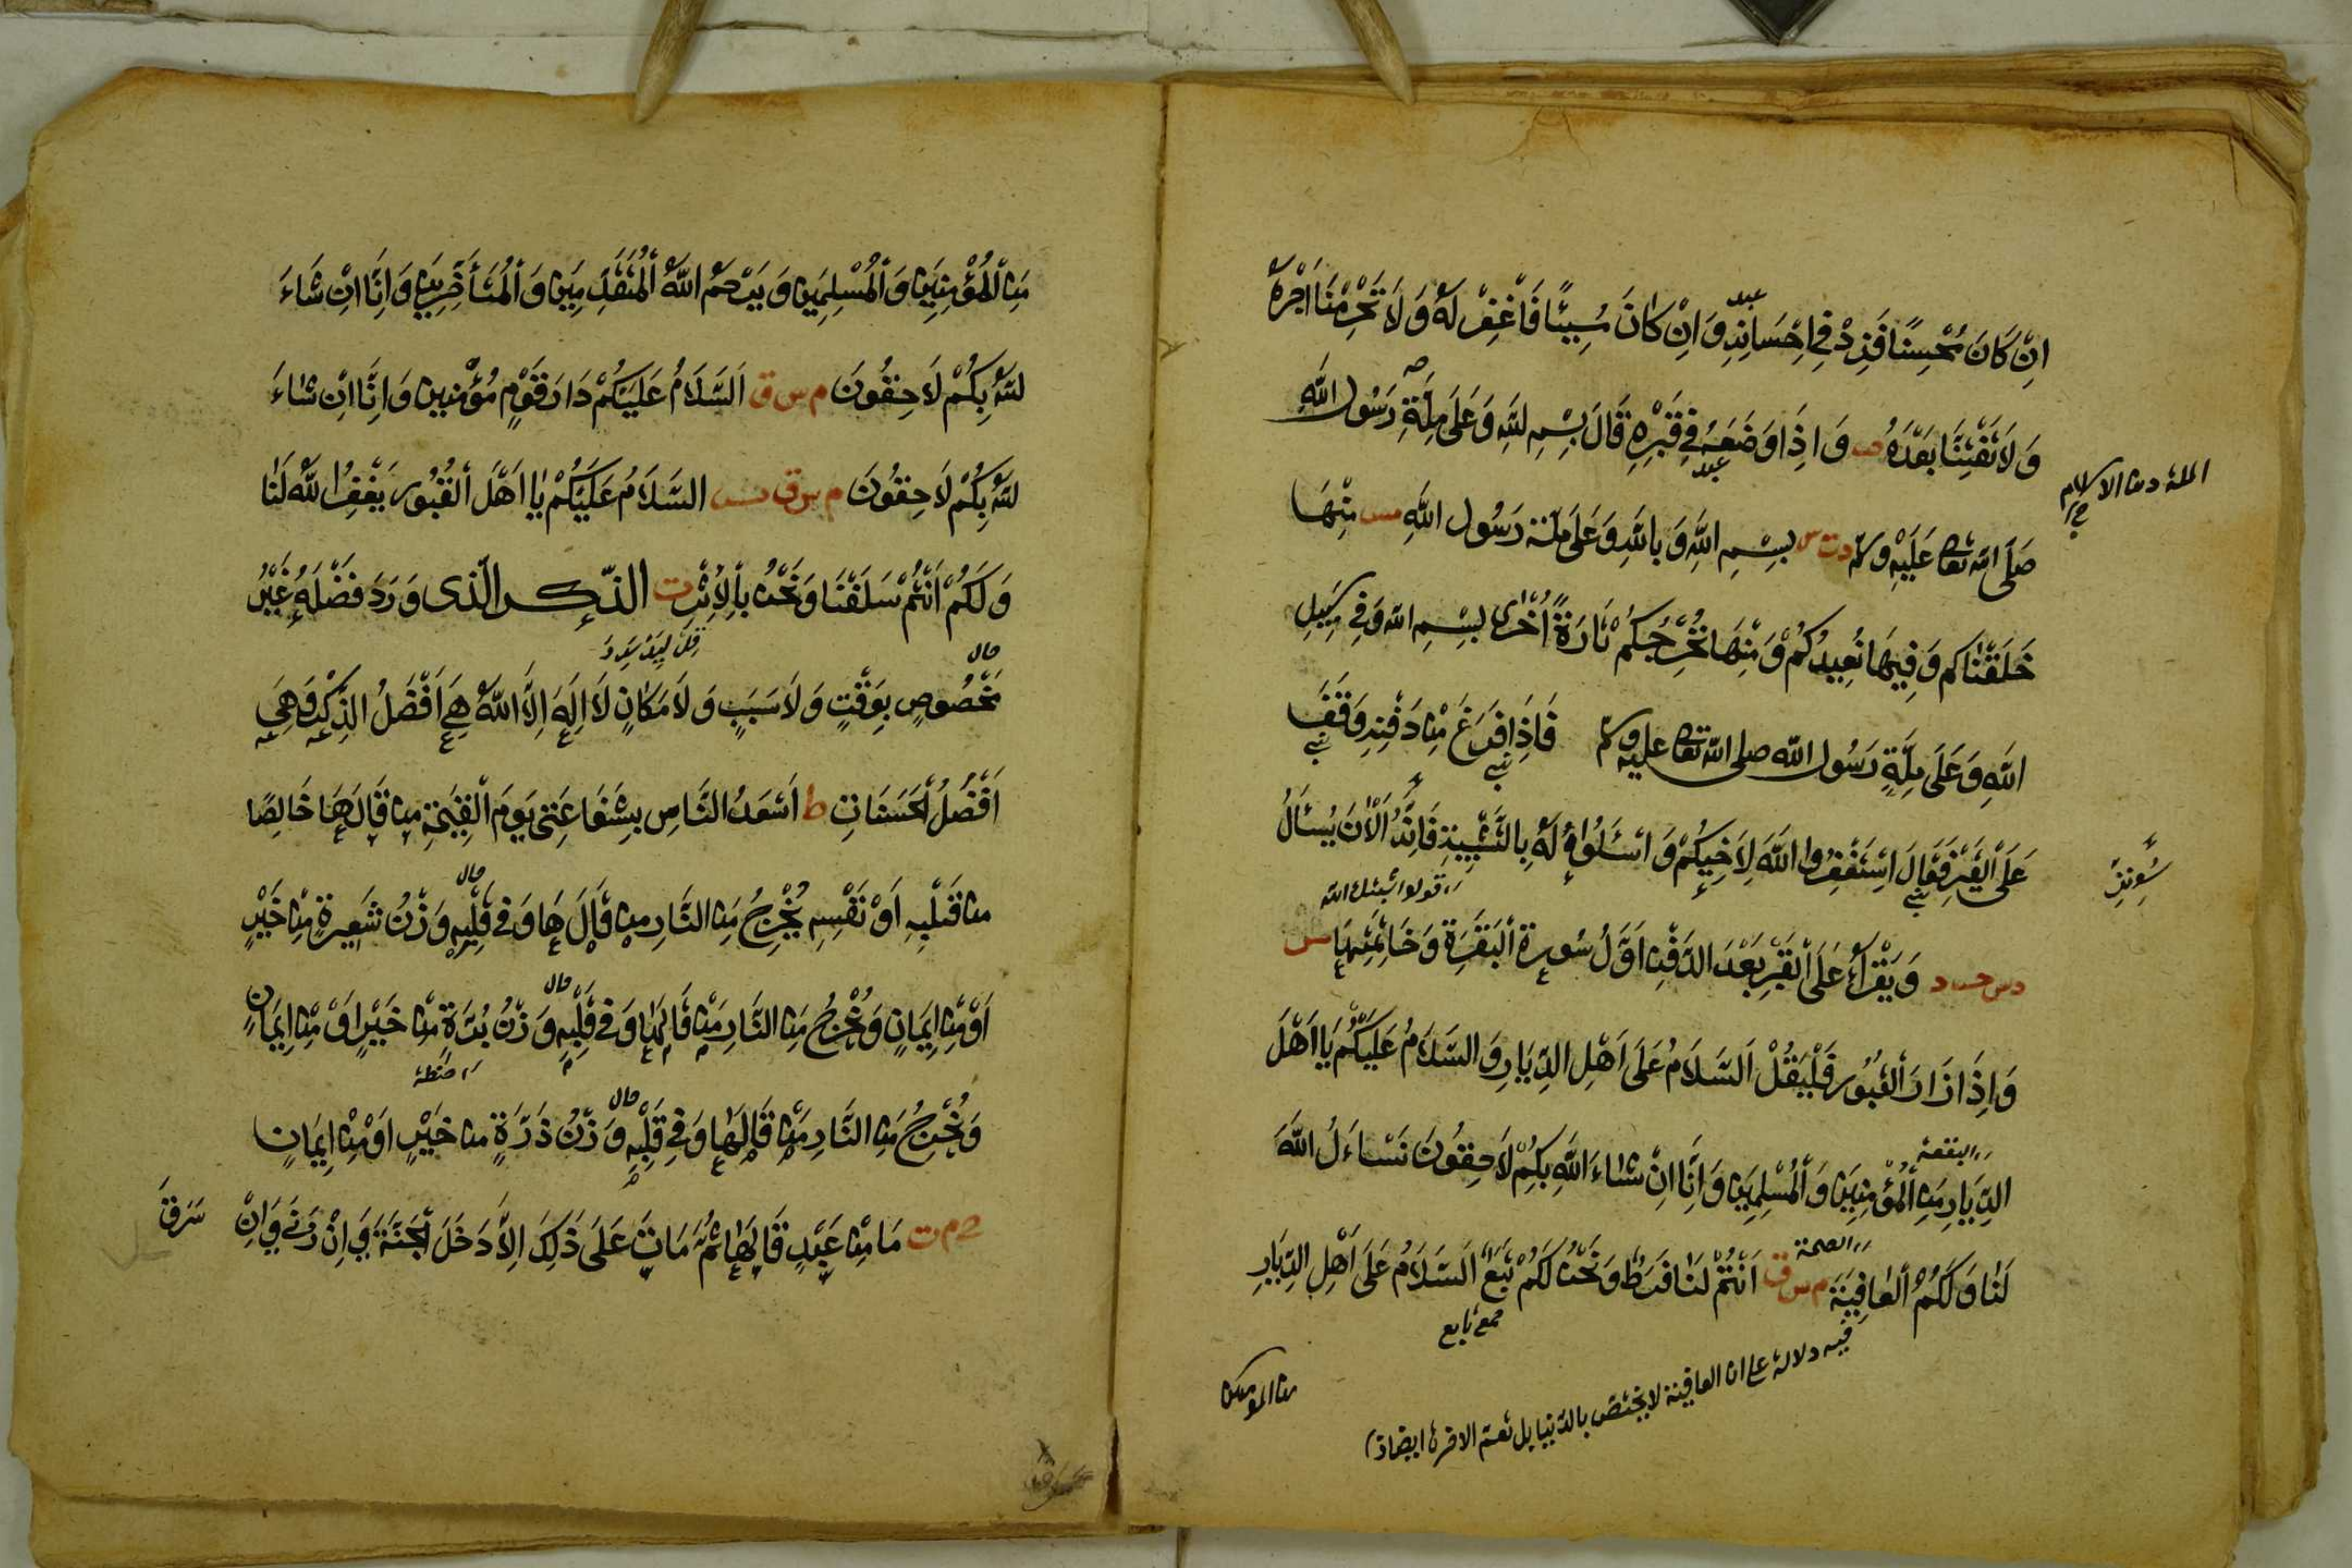 اِنْ كَانَ مُحْسِنًا فَزِدْ فِي اِحْسَانِهِ وَ اِنْ كَانَ مُسِيئًا فَاغْفِرْ لَهُ وَ لَا تَحْرِمْنَا اَجْرَهُ
وَ لَا تَفْتِنَّا بَعْدَهُ وَ اِذَا وَضَعَهُ فِي قَبْرِهِ قَالَ بِسْمِ اللهِ وَ عَلَى مِلَّةِ رَسُولِ اللهِ
الملة دين الاسلام
صَلَّى الله تعالى عَلَيْهِ وسلم د ت س بِسْمِ اللهِ وَ بِاللهِ وَ عَلَى مِلَّةِ رَسُولِ اللهِ مس مِنْهَا
خَلَقْنَاكُمْ وَ فِيهَا نُعِيدُكُمْ وَ مِنْهَا نُخْرِجُكُمْ تَارَةً اُخْرَى بِسْمِ الله وَ فِي سَبِيلِ
اللهِ وَ عَلَى مِلَّةِ رَسُولِ الله صلى الله تعالى عليه وسلم فَاِذَا فَرَغَ مِنْ دَفْنِهِ وَقَفَ
عَلَى الْقَبْرِ فَقَالَ اِسْتَغْفِرُوا اللهَ لِاَخِيكُمْ وَ اسْئَلُوا لَهُ بِالتَّثْبِيتِ فَاِنَّهُ اَلْآنَ يُسْأَلُ
قولوا ثبتك الله
د س حس د وَ يَقْرَأُ عَلَى الْقَبْرِ بَعْدَ الدَّفْنِ اَوَّلَ سُورَةِ الْبَقَرَةِ وَ خَاتِمَتَهَا س
وَ اِذَا زَارَ الْقُبُورَ فَلْيَقُلْ اَلسَّلَامُ عَلَى اَهْلِ الدِّيَارِ وَ السَّلَامُ عَلَيْكُمْ يَا اَهْلَ
الدِّيَارِ مِنَ الْمُؤْمِنِينَ وَ الْمُسْلِمِينَ وَ اِنَّا اِنْ شَاءَ اللهُ بِكُمْ لَاحِقُونَ نَسْاَلُ اللهَ
الصحة
لَنَا وَ لَكُمُ الْعَافِيَةَ م س ق اَنْتُمْ لَنَا فَرَطٌ وَ نَحْنُ لَكُمْ تَبَعٌ اَلسَّلَامُ عَلَى اَهْلِ الدِّيَارِ
جمع تابع
فيه دلالة على ان العافية لا يختص بالدنيا بل تعم الاخرة ايضا
من المؤمنين
مِنَ الْمُؤْمِنِينَ وَ الْمُسْلِمِينَ وَ يَرْحَمُ اللهُ الْمُتَقَدِّمِينَ وَ الْمُتَأَخِّرِينَ وَ اِنَّا اِنْ شَاءَ
اللهُ بِكُمْ لَاحِقُونَ م س ق اَلسَّلَامُ عَلَيْكُمْ دَارَ قَوْمٍ مُؤْمِنِينَ وَ اِنَّا اِنْ شَاءَ
اللهُ بِكُمْ لَاحِقُونَ م س ق السَّلَامُ عَلَيْكُمْ يَا اَهْلَ الْقُبُورِ يَغْفِرُ اللهُ لَنَا
وَ لَكُمْ اَنْتُمْ سَلَفُنَا وَ نَحْنُ بِالْاَثَرِ ت الذّكر الّذى وَرَدَ فَضْلُهُ غَيْرَ
مَخْصُوصٍ بِوَقْتٍ وَ لَا سَبَبٍ وَ لَا مَكَانٍ لَا اِلَهَ اِلَّا اللهُ هِيَ اَفْضَلُ الذِّكْرِ وَ هِيَ
اَفْضَلُ الْحَسَنَاتِ ط اَسْعَدُ النَّاسِ بِشَفَاعَتِي يَوْمَ الْقِيَمَةِ مَنْ قَالَهَا خَالِصًا
مِنْ قَلْبِهِ اَوْ نَفْسِهِ يُخْرَجُ مِنَ النَّارِ مَنْ قَالَهَا وَ فِي قَلْبِهِ وَزْنُ شَعِيرَةٍ مِنْ خَيْرٍ
اَوْ مِنْ اِيمَانٍ وَ يُخْرَجُ مِنَ النَّارِ مَنْ قَالَهَا وَ فِي قَلْبِهِ وَزْنُ بُرَّةٍ مِنْ خَيْرٍ اَوْ مِنْ اِيمَانٍ
حنطة
وَ يُخْرَجُ مِنَ النَّارِ مَنْ قَالَهَا وَ فِي قَلْبِهِ وَزْنُ ذَرَّةٍ مِنْ خَيْرٍ اَوْ مِنْ اِيمَانٍ
خ م ت مَا مِنْ عَبْدٍ قَالَهَا ثُمَّ مَاتَ عَلَى ذَلِكَ اِلَّا دَخَلَ الْجَنَّةَ وَ اِنْ زَنَى وَ اِنْ سَرَقَ